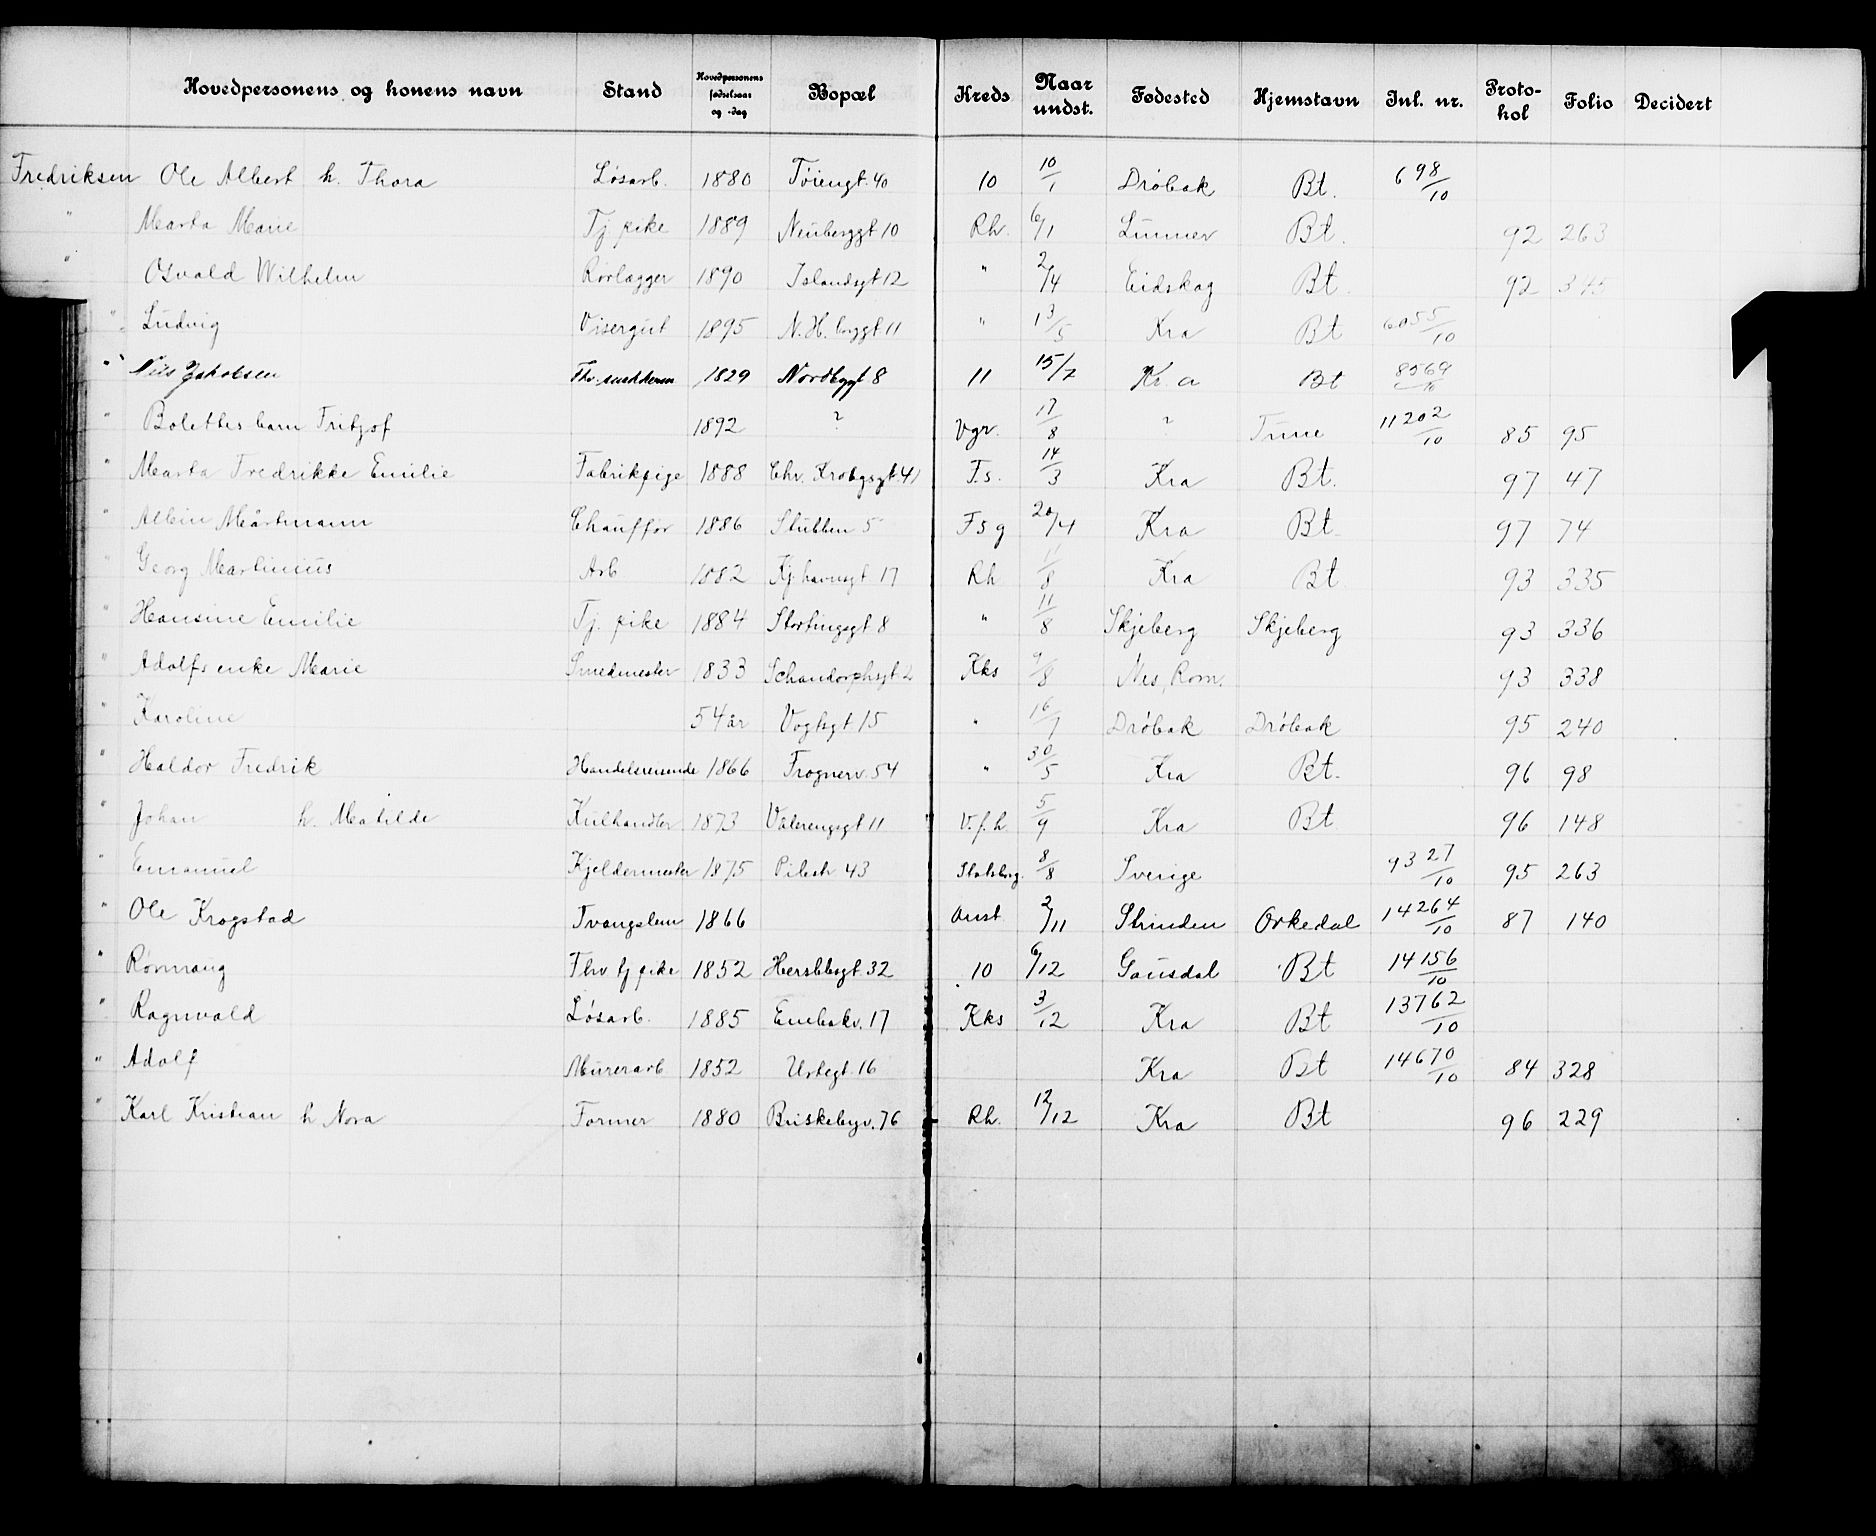 Hovedpersonens og konens navn | Stand | Hovedpersonens fødselsaar og -dag | Bopæl | Kreds | Naar undst. | Fødested | Hjemstavn | Inl. nr. | Protokol | Folio | Decidert
Fredriksen Ole Albert h. Thora | Løsarb. | 1880 | Tøiengt. 40 | 10 | 10/1 | Drøbak | Bt. | 698/10
" Marta Marie | Tj. pike | 1889 | Neuberggt 10 | Rh. | 6/1 | Lunner | Bt. | 92 | 263
" Osvald Wilhelm | Rørlægger | 1890 | Islandsgt 12 | " | 2/4 | Eidskog | Bt. | 92 | 345
" Ludvig | Visergut | 1895 | N. H. bryggt 11 | " | 13/5 | Kra | Bt | 6055/10
" Nils Jakobsen | Fhv. | 1829 | Nordbygt 8 | 11 | 15/7 | Kr. a | Bt | 8569/10
" Bolettes barn Fritjof | 1892 | ? | Vgr. | 17/8 | ? | Tune | 11202/10 | 85 | 95
" Marta Fredrikke Emilie | Fabrikpige | 1888 | Chr. Krohgsgt. 41 | F.s. | 14/3 | Kra | Bt. | 97 | 47
" Albin Mårtmann | Chauffør | 1886 | Stubben 5 | Fsg | 20/4 | Kra | Bt. | 97 | 74
" Georg Martinius | Arb | 1882 | Kj.havnsgt 17 | Rh | 11/8 | Kra | Bt | 93 | 335
" Hansine Emilie | Tj. pike | 1884 | Stortingsgt 8 | " | 11/8 | Skjeberg | Skjeberg | 93 | 336
" Adolfs enke Marie | Smedmester | 1833 | Schandorphsgt 2 | Kks | 9/8 | Nes, Rom. | 93 | 338
" Karoline | 54 år | Vogtsgt 15 | " | 16/9 | Drøbak | Drøbak | 95 | 240
" Haldor Fredrik | Handelsreisende | 1866 | Frognerv. 54 | " | 30/5 | Kra | Bt. | 96 | 98
" Johan h. Matilde | Kulhandler | 1873 | Vålerengsgt 11 | V.f.h. | 5/9 | Kra | Bt | 96 | 148
" Emanuel | Kjeldermester | 1875 | Pilestr 43 | Statsborg. | 8/8 | Sverige | 9327/10 | 95 | 263
" Ole Krogstad | Tvangslem | 1866 | Anst | 2/11 | Strinden | Orkedal | 14264/10 | 87 | 140
" Rønnaug | Fhv tj pike | 1852 | Herslebsgt. 32 | 10 | 6/12 | Gausdal | Bt | 14156/10
" Ragnvald | Løsarb. | 1885 | Enebakv. 17 | Kks | 3/12 | Kra | Bt | 13762/10
" Adolf | Murerarb | 1852 | Urtegt. 16 | Kra | Bt | 14670/10 | 84 | 328
" Karl Kristian h Nora | Former | 1880 | Briskebyv. 76 | Rh. | 12/12 | Kra | Bt | 96 | 229